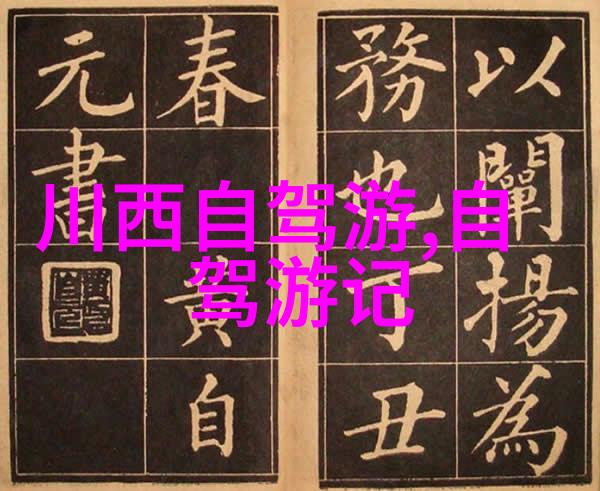 川西自驾游,自
驾游记
以闡揚為
務也丁丑
春黄自
元書